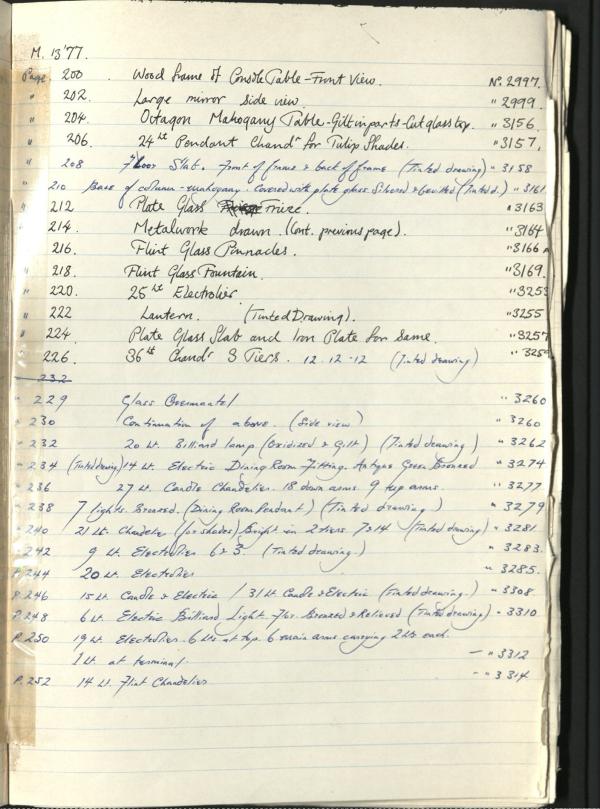 M. 13'77.
Page 200 . Wood frame of Console Table - Front View. No. 2997.
" 202. Large mirror side view. " 2999.
" 204. Octagon Mahogany Table - Gilt in parts - Cut glass top. " 3156.
" 206. 24 Lt Pendant Chandr for Tulip Shades. " 3157.
" 208 Floor Slab. Front of frame & back of frame (Tinted drawing) " 3158
210 Base of column - mahogany. Covered with plate glass Silvered & bevelled (Tinted d.) " 3161
" 212 Plate Glass Frieze. " 3163
" 214. Metalwork drawn. (Cont. previous page). " 3164
" 216. Flint Glass Pinnacles. " 3166 A
" 218. Flint Glass Fountain. " 3169.
" 220. 25 Lt Electrolier. " 3253
" 222 Lantern. (Tinted Drawing). " 3255
" 224 Plate Glass Slab and Iron Plate for Same. " 3257
" 226. 36 Lt Chandr 3 Tiers. 12.12.12 (Tinted drawing) " 3259
232
" 229 Glass Overmantel " 3260
" 230 Continuation of above. (Side view) " 3260
" 232 20 Lt. Billiard lamp (Oxidised & Gilt) (Tinted drawing) " 3262
" 234 (Tinted drawing) 14 Lt. Electric Dining Room Fitting. Antique Green Bronzed " 3274
" 236 27 Lt. Candle Chandelier. 18 down arms. 9 top arms. " 3277
" 238 7 lights. Bronzed. (Dining Room Pendant) (Tinted drawing) " 3279
" 240 21 Lt. Chandelier (for shades) Bright in 2 tiers 7 & 14 (Tinted drawing) " 3281.
" 242 9 Lt. Electrolier 6 & 3. (Tinted drawing.) " 3283.
P. 244 20 Lt. Electrolier " 3285.
P. 246 15 Lt. Candle & Electric / 31 Lt. Candle & Electric (Tinted drawing.) " 3308.
P. 248 6 Lt. Electric Billiard Light Ftr. Bronzed & Relieved (Tinted drawing) " 3310
P. 250 19 Lt. Electrolier. 6 Lts at top. 6 main arms carrying 2 Lts each.
1 Lt at terminal. - " 3312
P. 252 14 Lt. Flint Chandelier - " 3314